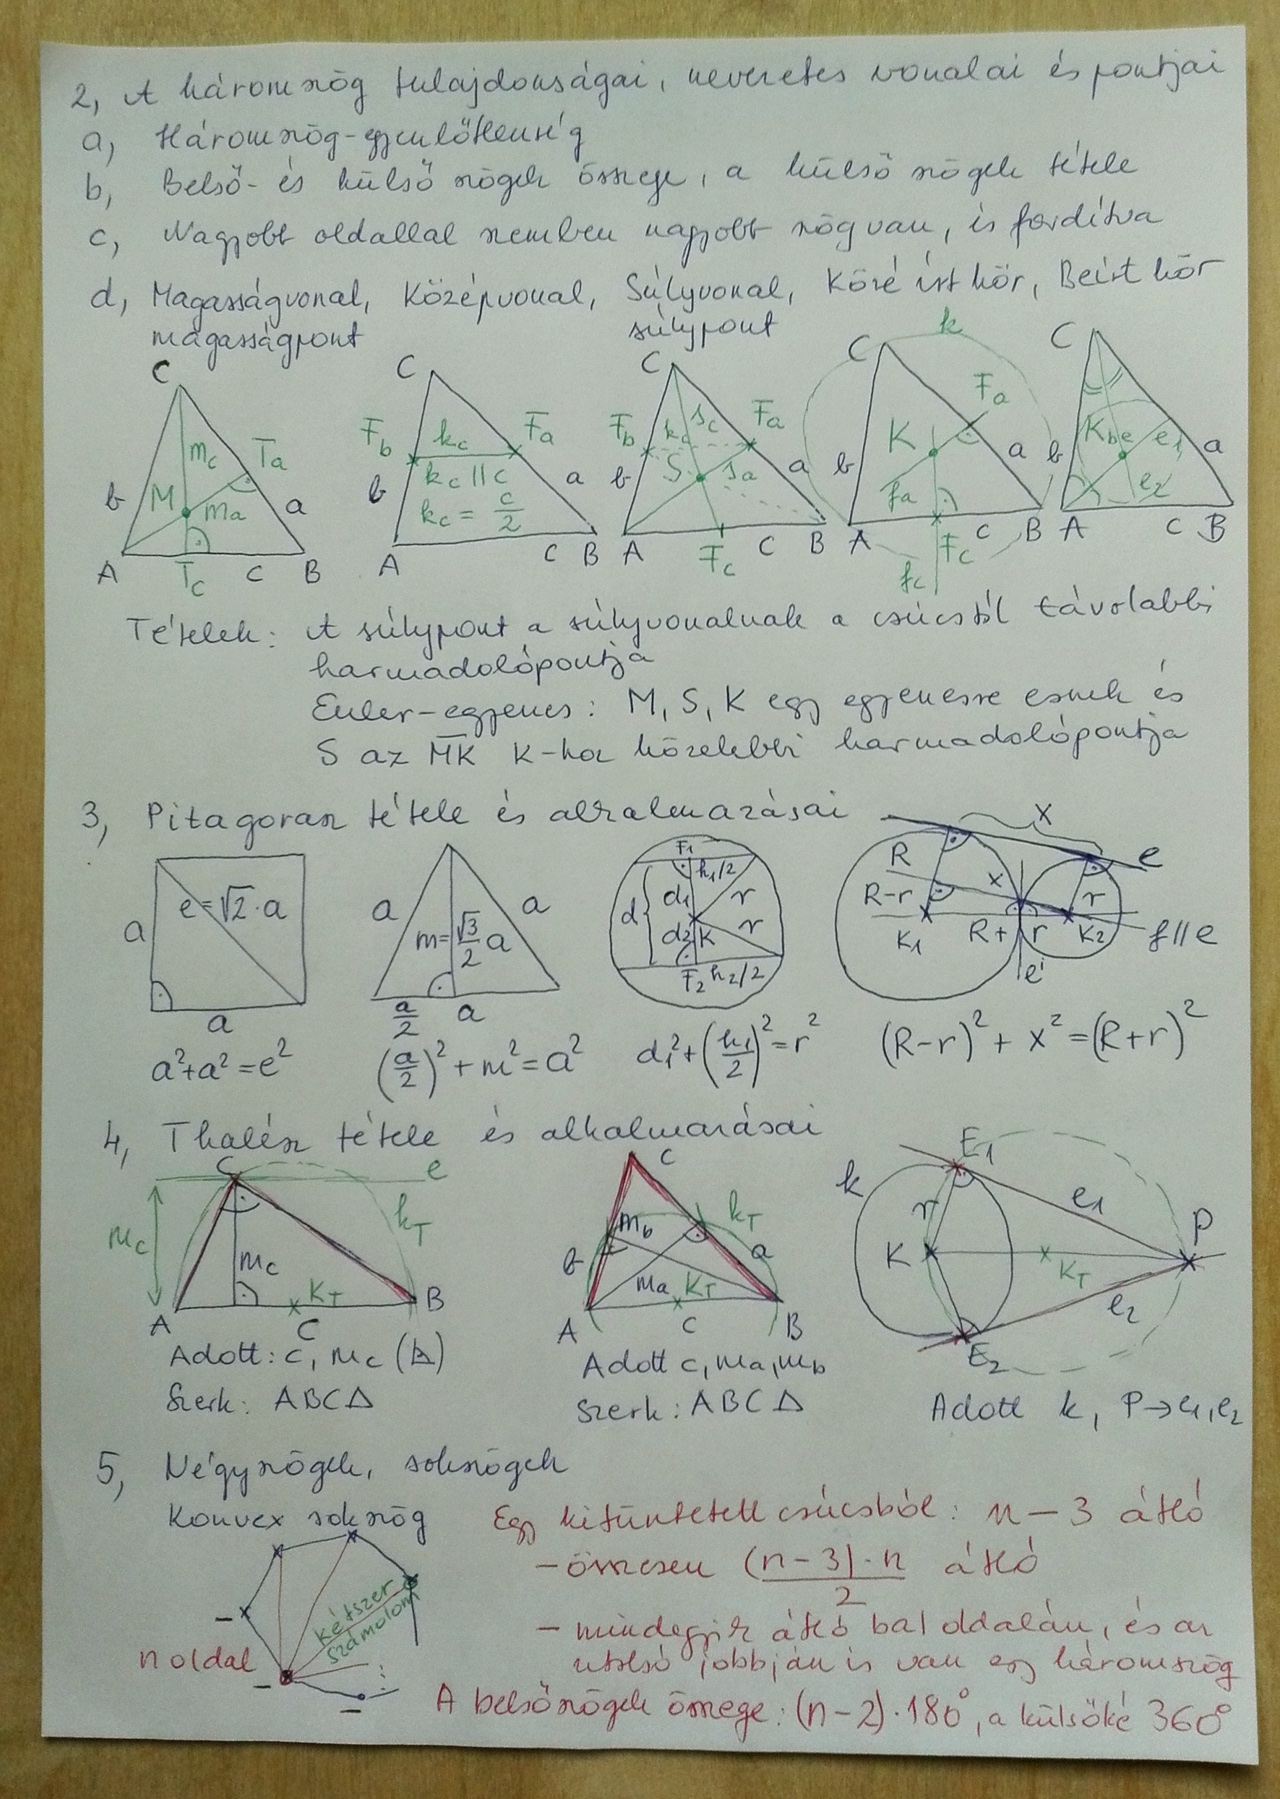 2, A háromszög tulajdonságai, nevezetes vonalai és pontjai
a, Háromszög-egyenlőtlenség
b, Belső- és külső szögek összege, a külső szögek tétele
c, Nagyobb oldallal szemben nagyobb szög van, és fordítva
d, Magasságvonal, Középvonal, Súlyvonal, Köré írt kör, Beírt kör
magasságpont súlypont
C mc Ta b M ma a A Tc c B
C Fb kc Fa b kc || c a kc = c/2 A c B
C Fb kc sc Fa b S sa a A Fc c B
k C Fa K b a fa A c B Fc fc
C Kbe e1 b a e2 A c B
Tételek: A súlypont a súlyvonalnak a csúcstól távolabbi
harmadolópontja
Euler-egyenes: M, S, K egy egyenesre esnek és
S az MK K-hoz közelebbi harmadolópontja
3, Pitagorasz tétele és alkalmazásai
a e=√2·a a
a a m=√3/2 a a/2 a
F1 h1/2 d d1 r r d2 K F2 h2/2
x R e R-r x r K1 R+r K2 f||e e'
a²+a²=e² (a/2)²+m²=a² d1²+(h1/2)²=r² (R-r)²+x²=(R+r)²
4, Thalész tétele és alkalmazásai
C e mc kT mc A KT c B
C mb kT b a ma KT A c B
k E1 r e1 P K KT e2 E2
Adott: c, mc (⊾) Adott c, ma, mb
Szerk: ABC△ Szerk: ABC△ Adott k, P→e1,e2
5, Négyszögek, sokszögek
Konvex sokszög Egy kitüntetett csúcsból: n-3 átló
-összesen (n-3)·n/2 átló
kétszer
számolom
- mindegyik átló bal oldalán, és az
n oldal utolsó jobbján is van egy háromszög
A belső szögek összege: (n-2)·180°, a külsőké 360°